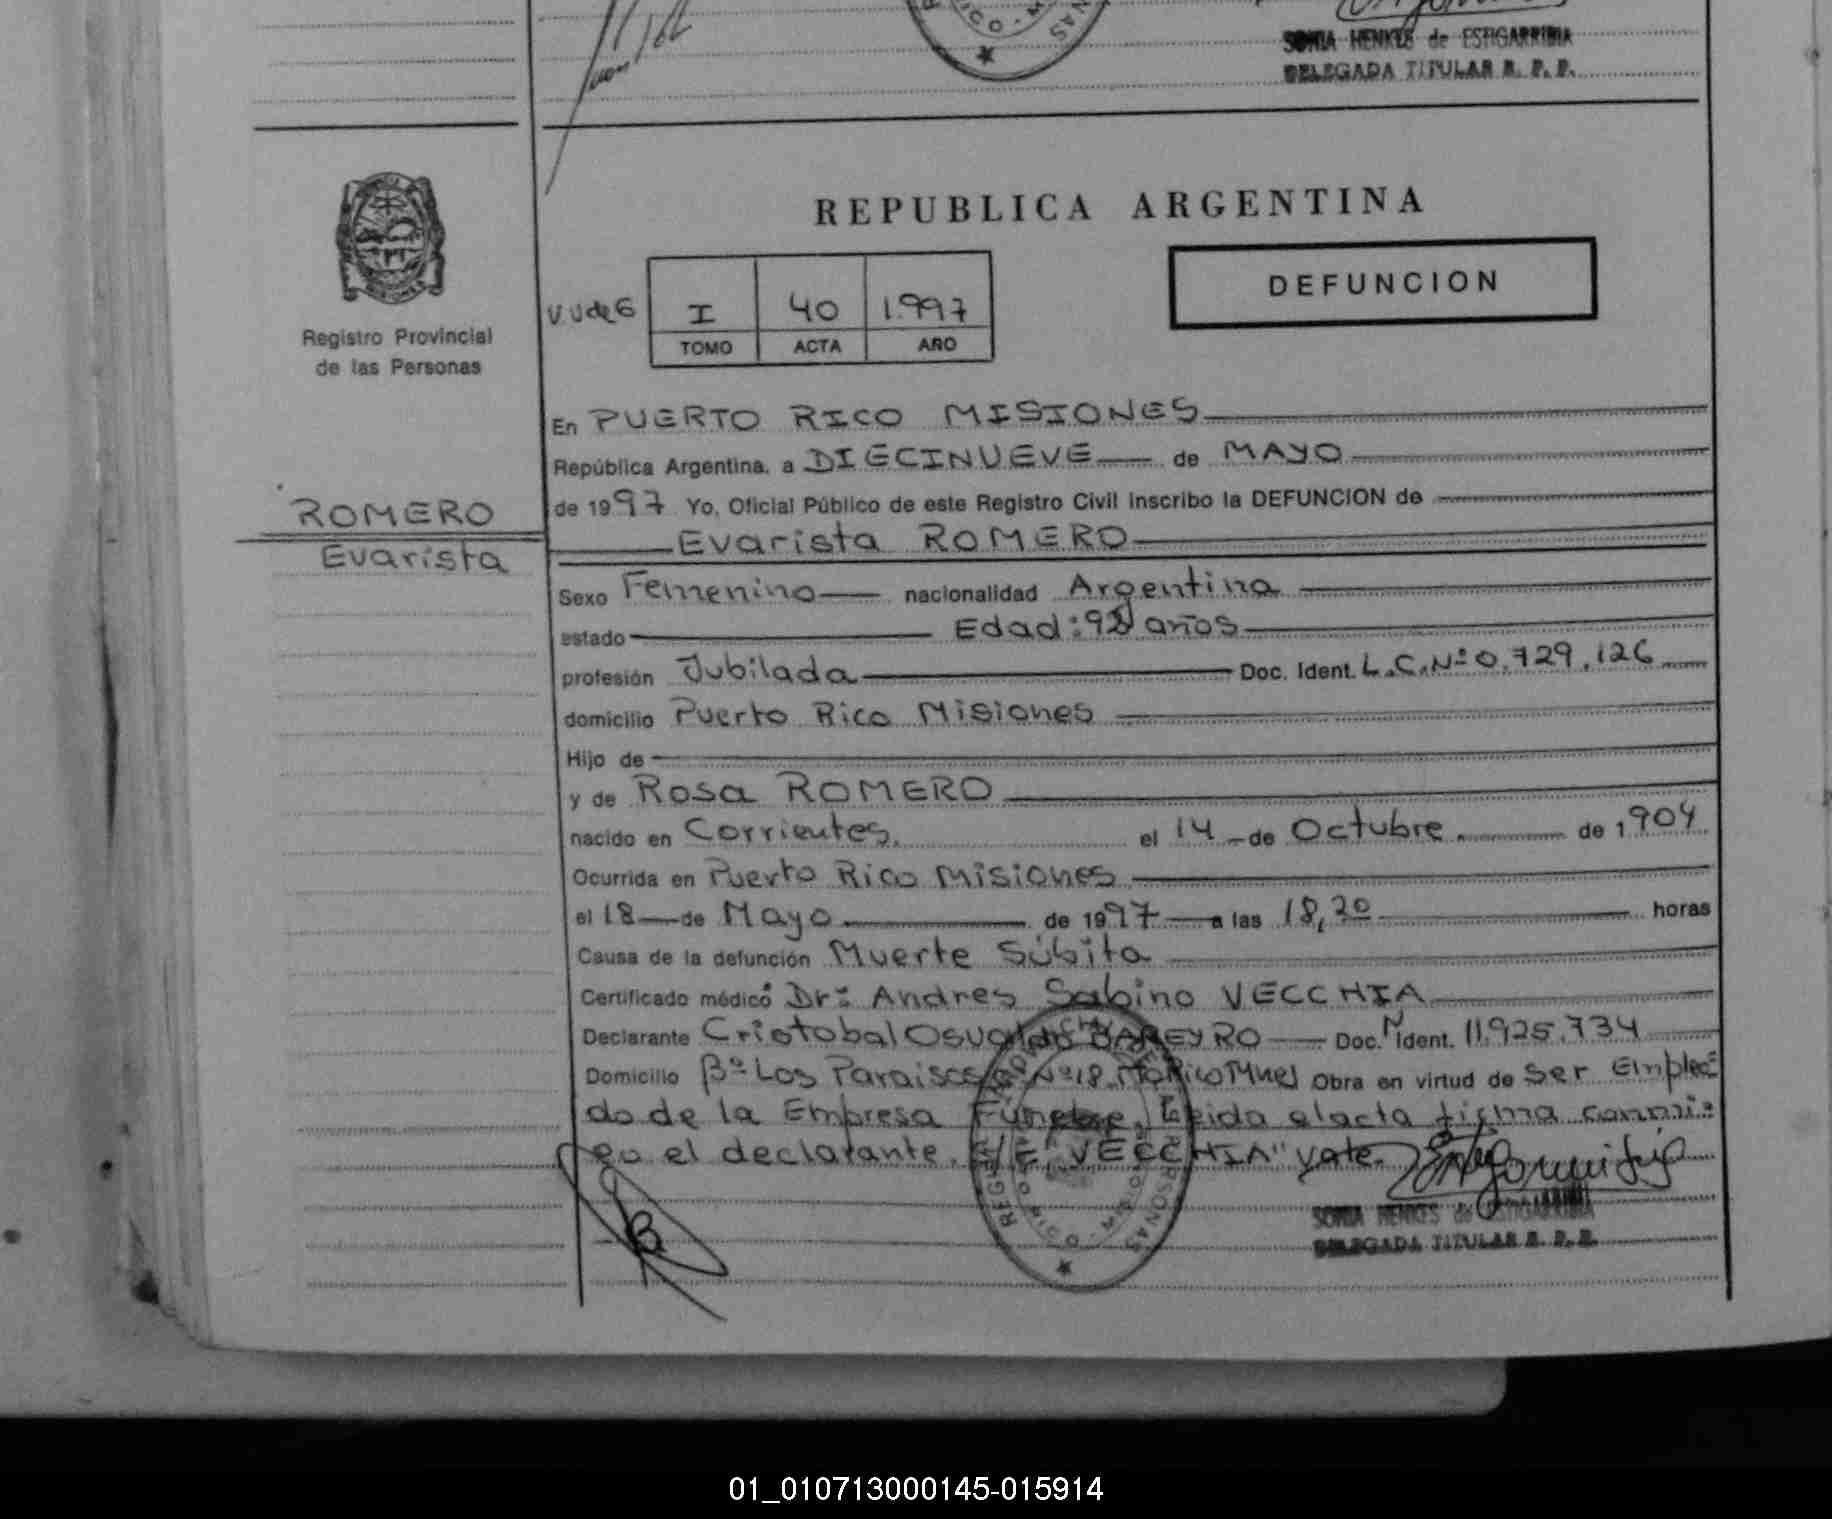 SONIA HENKES de ESTIGARRIBIA
DELEGADA TITULAR R. P. P.
Registro Provincial
de las Personas
REPUBLICA ARGENTINA
DEFUNCION
I 40 1.997
TOMO ACTA AÑO
ROMERO
Evarista
En PUERTO RICO MISIONES
República Argentina, a DIECINUEVE de MAYO
de 1997 Yo, Oficial Público de este Registro Civil inscribo la DEFUNCION de
Evarista ROMERO
Sexo Femenino nacionalidad Argentina
estado Edad: años
profesión Jubilada Doc. Ident. L.C.Nº 0.729.126
domicilio Puerto Rico Misiones
Hijo de
y de Rosa ROMERO
nacido en Corrientes. el 14 de Octubre. de 1904
Ocurrida en Puerto Rico Misiones
el 18 de Mayo de 1997 a las 18,20 horas
Causa de la defunción Muerte Súbita
Certificado médico Dr: Andres Sabino VECCHIA
Declarante Cristobal Osvaldo BAREYRO Doc. Ident. 11.925.734
Domicilio Bº Los Paraisos Nº 18 Obra en virtud de ser Emplea
do de la Empresa Funebre, Leida el acta firma conmi-
go el declarante. "VECCHIA" vale.
SONIA HENKES de ESTIGARRIBIA
DELEGADA TITULAR R. P. P.
01_010713000145-015914